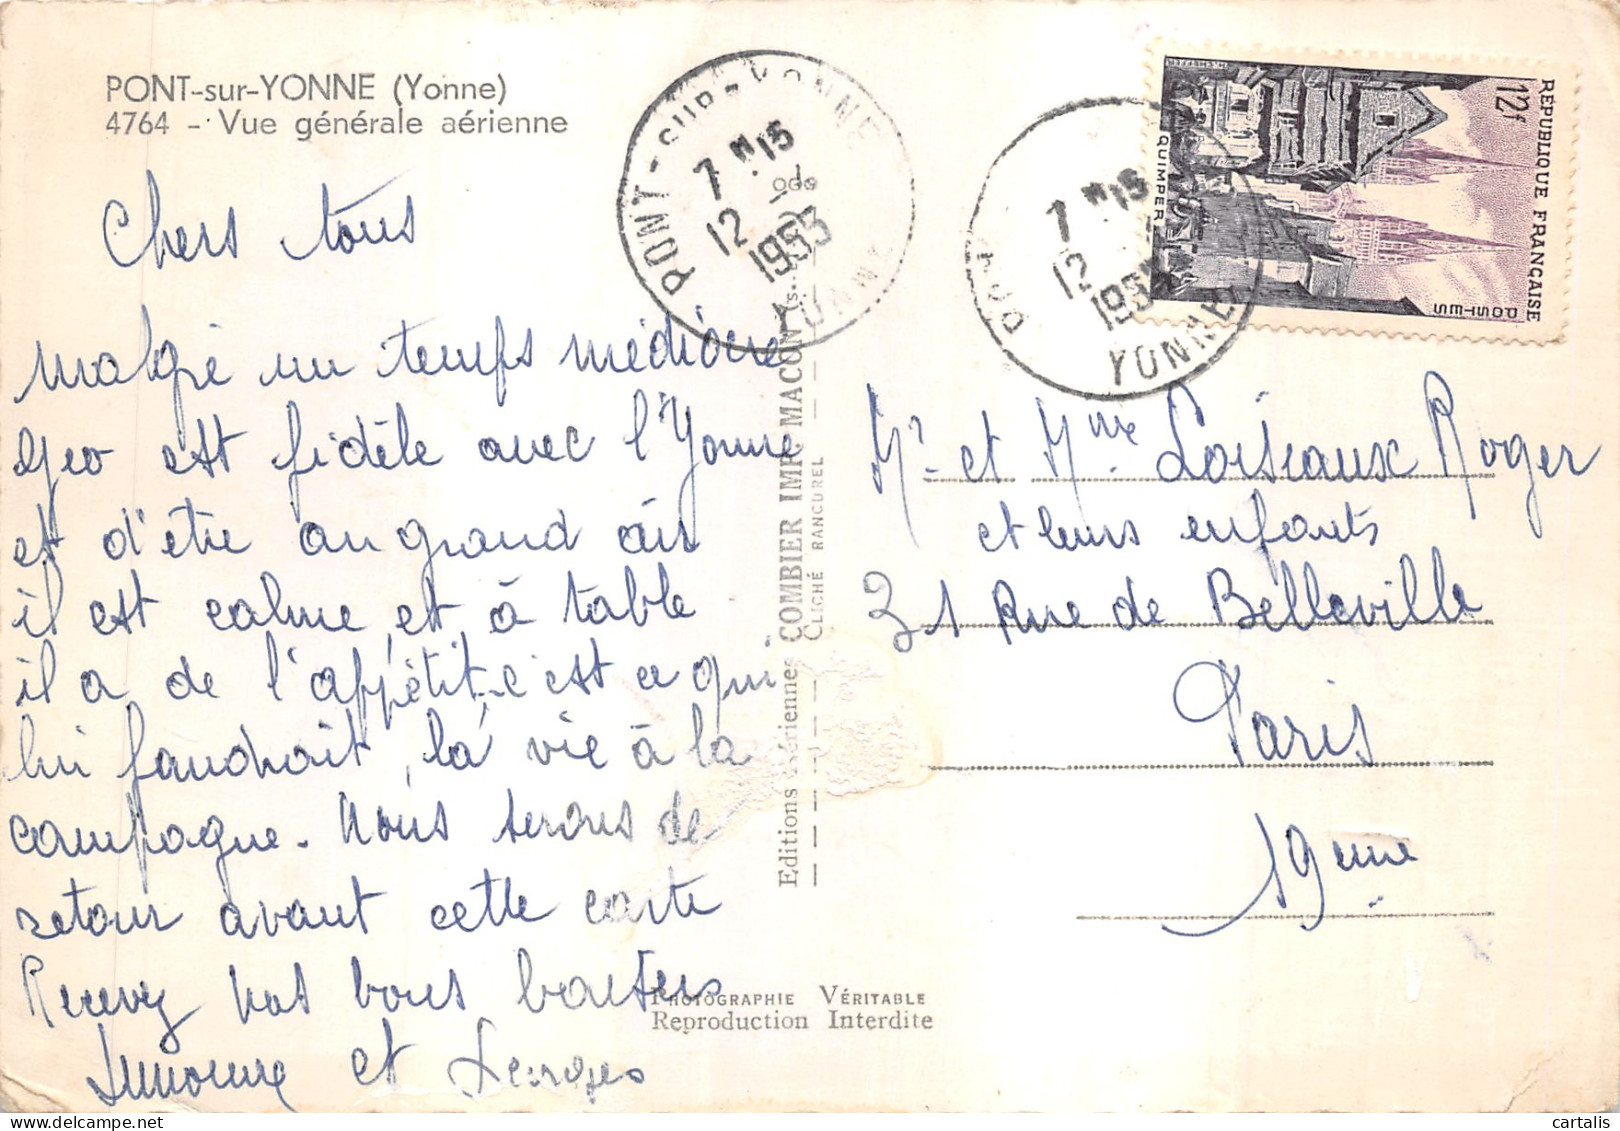 PONT-sur-YONNE (Yonne)
4764 - Vue générale aérienne
Chers tous
malgré un temps médiocre
Geo est fidèle avec l'Yonne
et d'être au grand air
il est calme, et à table
il a de l'appétit - c'est ce qui
lui faudrait, la vie à la
campagne. Nous serons de
retour avant cette carte
Recevez nos bons baisers
et Georges
PONT-SUR-YONNE
7 H 15
12
1953
YONNE
7 H 15
12
195
YONNE
RÉPUBLIQUE FRANÇAISE
12f
POSTES
QUIMPER
H. CHEFFER
Editions Aériennes COMBIER IMP. MACON
CLICHÉ RANCUREL
Mr et Mme Loiseaux Roger
et leurs enfants
31 Rue de Belleville
Paris
19eme
PHOTOGRAPHIE VÉRITABLE
Reproduction Interdite
cartalis